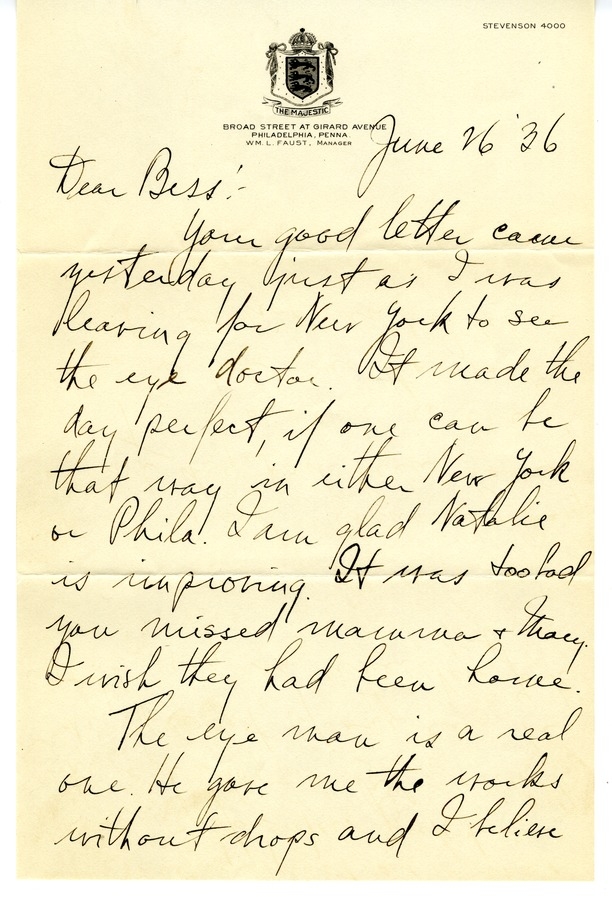 STEVENSON 4000
THE MAJESTIC
BROAD STREET AT GIRARD AVENUE
PHILADELPHIA, PENNA.
WM. L. FAUST, MANAGER
June 26 '36
Dear Bess:-
Your good letter came
yesterday just as I was
leaving for New York to see
the eye doctor. It made the
day perfect, if one can be
that way in either New York
or Phila. I am glad Natalie
is improving. It was too bad
you missed mamma + Mary.
I wish they had been home.
The eye man is a real
one. He gave me the works
without drops and I believe